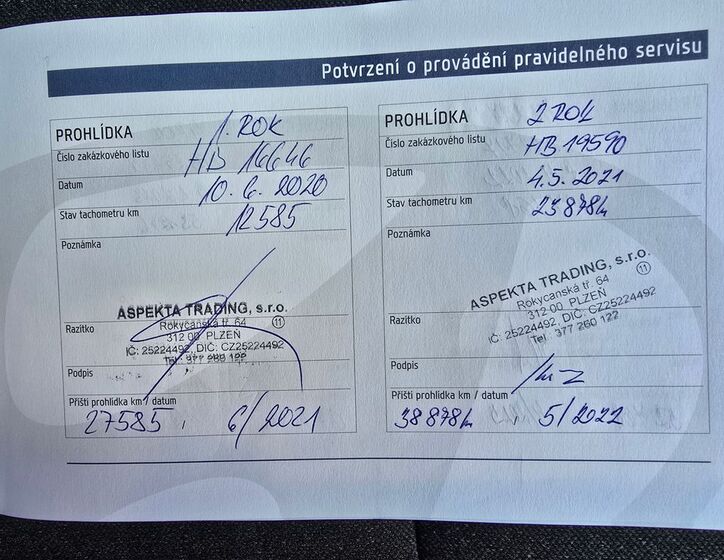 Potvrzení o provádění pravidelného servisu
PROHLÍDKA 1. ROK
Číslo zakázkového listu HB 16646
Datum 10. 6. 2020
Stav tachometru km 12585
Poznámka
ASPEKTA TRADING, s.r.o.
Rokycanská tř. 64
312 00 PLZEŇ (11)
IČ: 25224492, DIČ: CZ25224492
Tel.: 377 260 122
Razítko
Podpis
Příští prohlídka km / datum
27585, 6/2021
PROHLÍDKA 2 ROK
Číslo zakázkového listu HB 19590
Datum 4.5. 2021
Stav tachometru km 23878
Poznámka
ASPEKTA TRADING, s.r.o.
Rokycanská tř. 64 (11)
312 00 PLZEŇ
IČ: 25224492, DIČ: CZ25224492
Tel.: 377 260 122
Razítko
Podpis
Příští prohlídka km / datum
38878, 5/2022